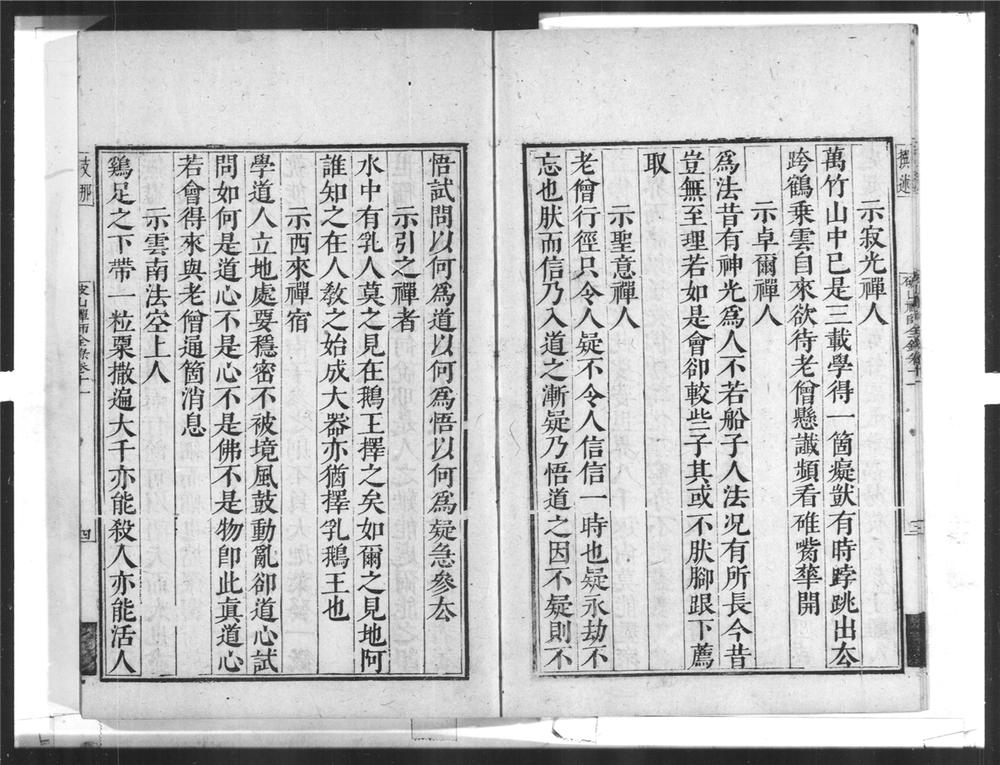 撰述
破山禪師全錄卷十一
三
示寂光禪人
萬竹山中已是三載學得一箇癡獃有時踍跳出厺
跨鶴乘雲自來欲待老僧懸讖頻看碓嘴華開
示卓爾禪人
爲法昔有神光爲人不若船子人法况有所長今昔
豈無至理若如是會卻較些子其或不肰腳跟下薦
取
示聖意禪人
老僧行徑只令人疑不令人信信一時也疑永劫不
忘也肰而信乃入道之漸疑乃悟道之因不疑則不
悟試問以何爲道以何爲悟以何爲疑急參厺
示引之禪者
水中有乳人莫之見在鵝王擇之矣如爾之見地阿
誰知之在人敎之始成大器亦猶擇乳鵝王也
示西來禪宿
學道人立地處要穩密不被境風鼓動亂卻道心試
問如何是道心不是心不是佛不是物卽此眞道心
若會得來與老僧通箇消息
示雲南法空上人
鷄足之下帶一粒粟撒遍大千亦能殺人亦能活人
支那
破山禪師全錄卷十一
四